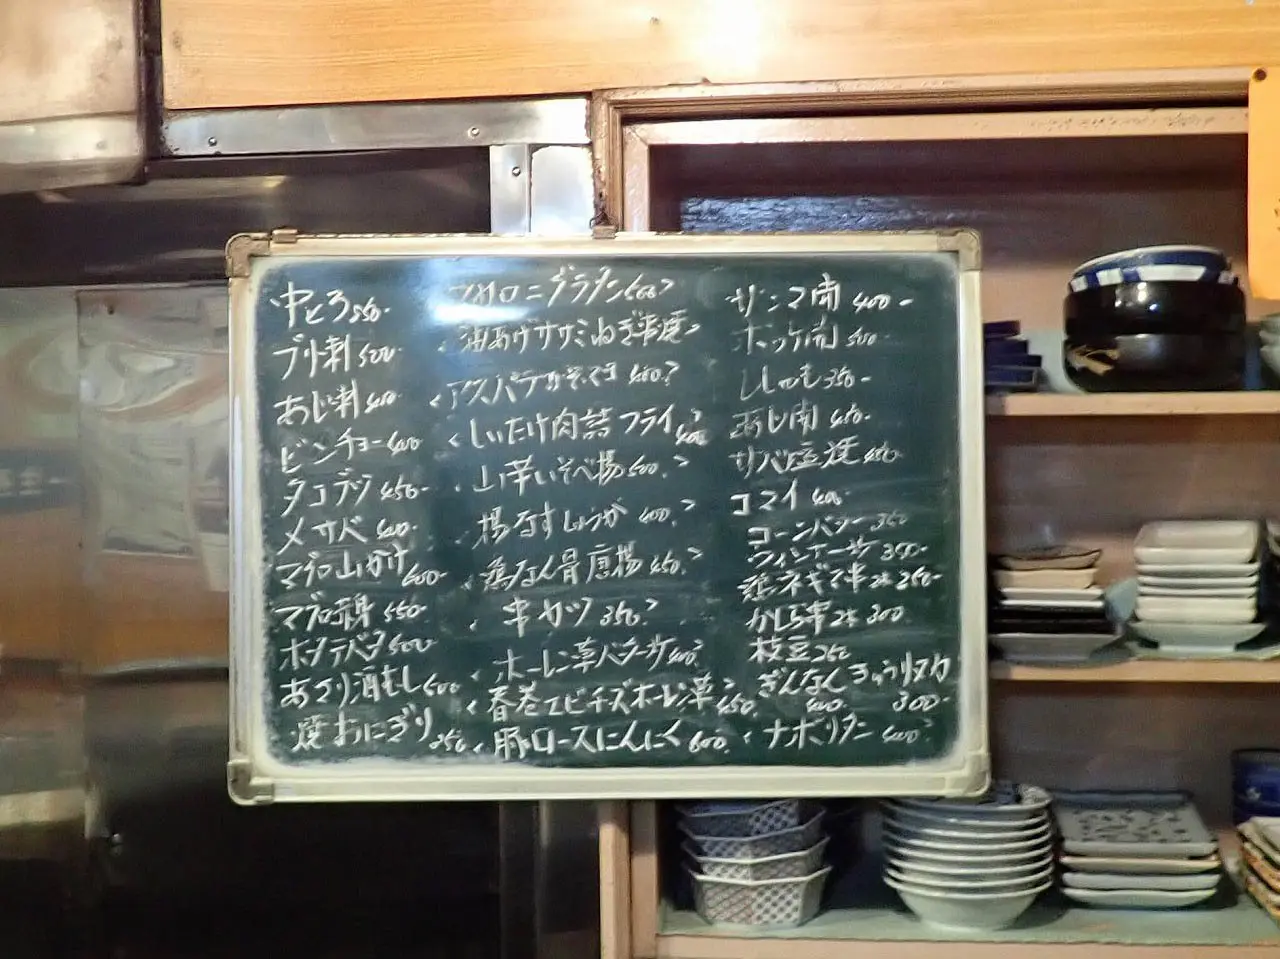 中とろ 550-
ブリ刺 500
あじ刺 400
ビンチョー 400
タコブツ 450-
メサバ 400
マグロ山かけ 600-
マグロ 550
ホタテバタ 500
あさり酒むし 500
焼おにぎり 250
マカロニグラタン 500
油あげササミねぎ串焼
アスパラ 400
しいたけ肉詰フライ 400
山芋いそべ揚 500
揚なすしょうが 400
鶏なん骨唐揚 450
串カツ 350
ホーレン草バター炒 400
春巻エビチーズホーレン草 450
豚ロースにんにく 600
サンマ開 400-
ホッケ開 500-
ししゃも 350-
あじ開 450-
サバ塩焼 450
コマイ 400
コーンバター 350
ウィンナー炒 350-
鶏ネギマ串 2本 250-
かしら串 2本 300
枝豆 250
ぎんなん 400
きゅうりヌカ 300-
ナポリタン 400